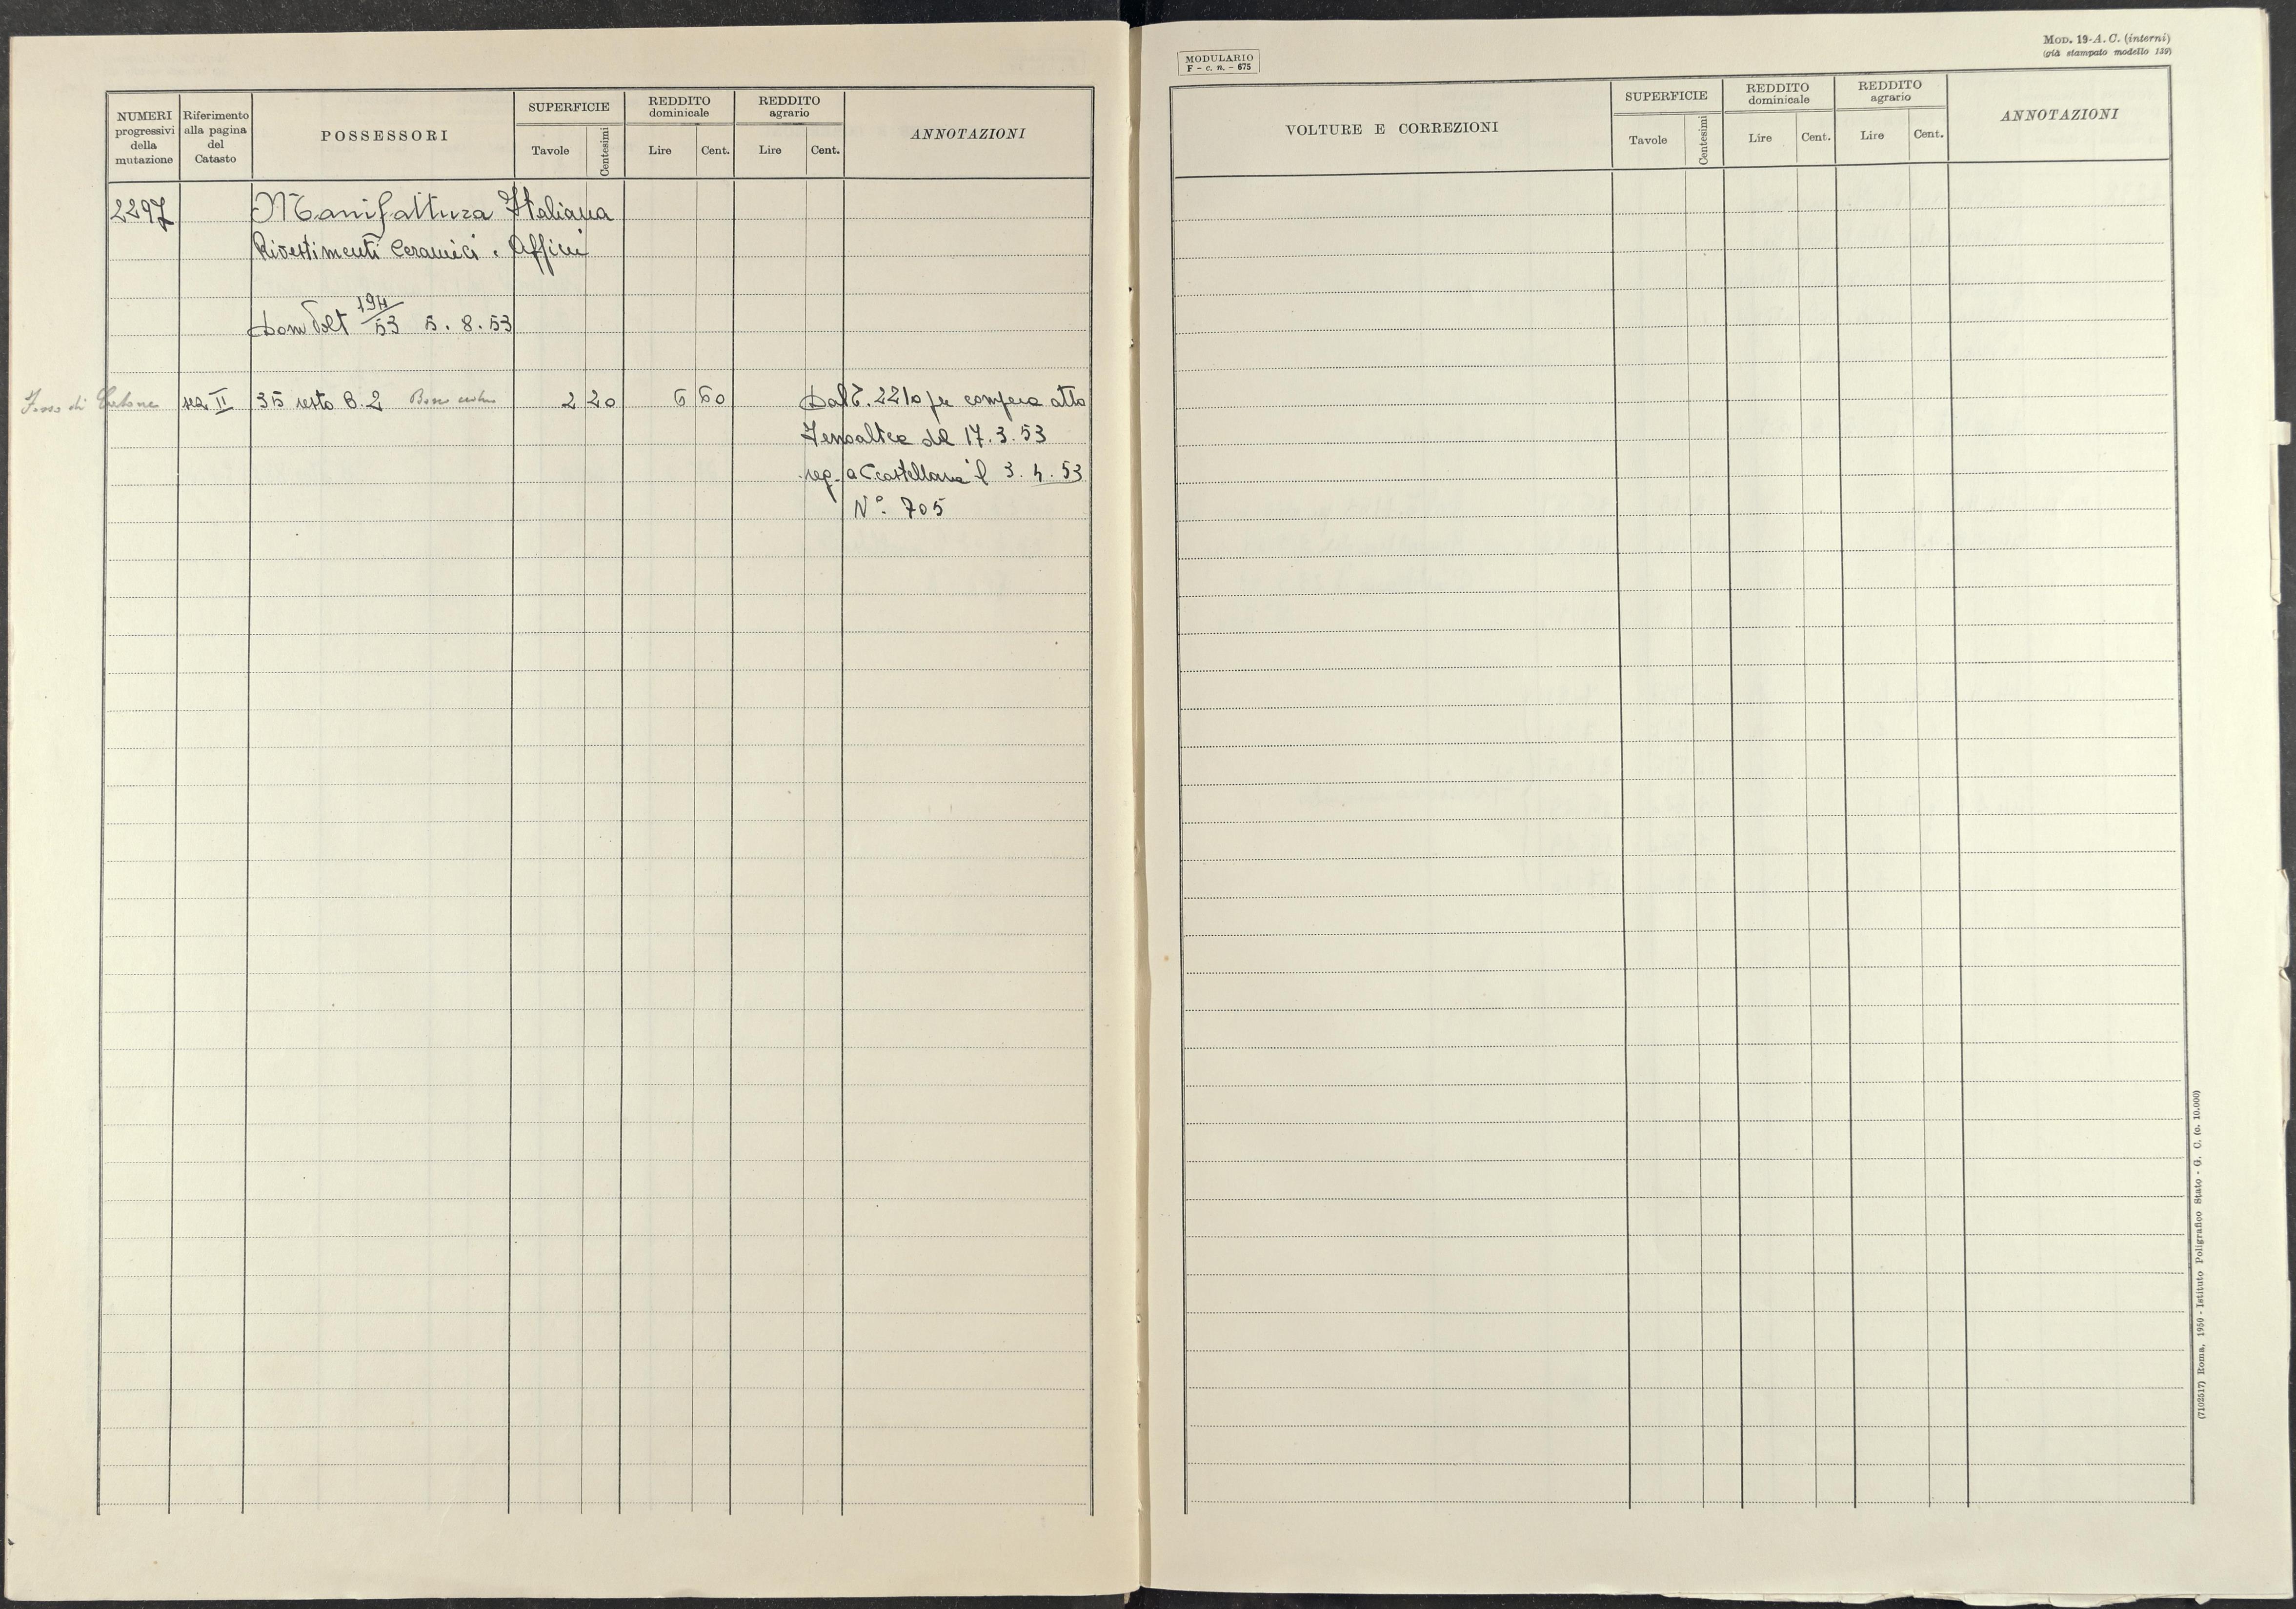 NUMERI progressivi della mutazione
Riferimento alla pagina del Catasto
POSSESSORI
SUPERFICIE
Tavole
Centesimi
REDDITO dominicale
Lire
Cent.
REDDITO agrario
Lire
Cent.
ANNOTAZIONI
2297
Manifattura Italiana
Rivestimenti Ceramici . Affini
Dom Volt 194/53 5. 8. 53
Fosso di
sez II 35 resto B. 2 2 20 6 60 Dal . 2210 per compera atto
del 17. 3. 53
reg. a il 3. 4. 53
N°. 705
MODULARIO
F - c. n. - 675
MOD. 19-A. C. (interni)
(già stampato modello 139)
VOLTURE E CORREZIONI
SUPERFICIE
Tavole
Centesimi
REDDITO dominicale
Lire
Cent.
REDDITO agrario
Lire
Cent.
ANNOTAZIONI
(7102517) Roma, 1950 - Istituto Poligrafico Stato - G. C. (c. 10.000)